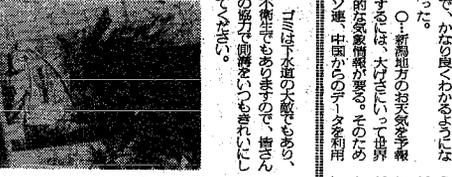 で、かなり良くわかるようにな
った。
○…新潟地方のお天気を予報
するには、大げさにいって世界
的な気象情報が要る。そのため
ソ連、中国からのデータを利用
ゴミは下水道の大敵でもあり、
不衛生でもありますので、皆さん
の協力で側溝をいつもきれいにし
てください。